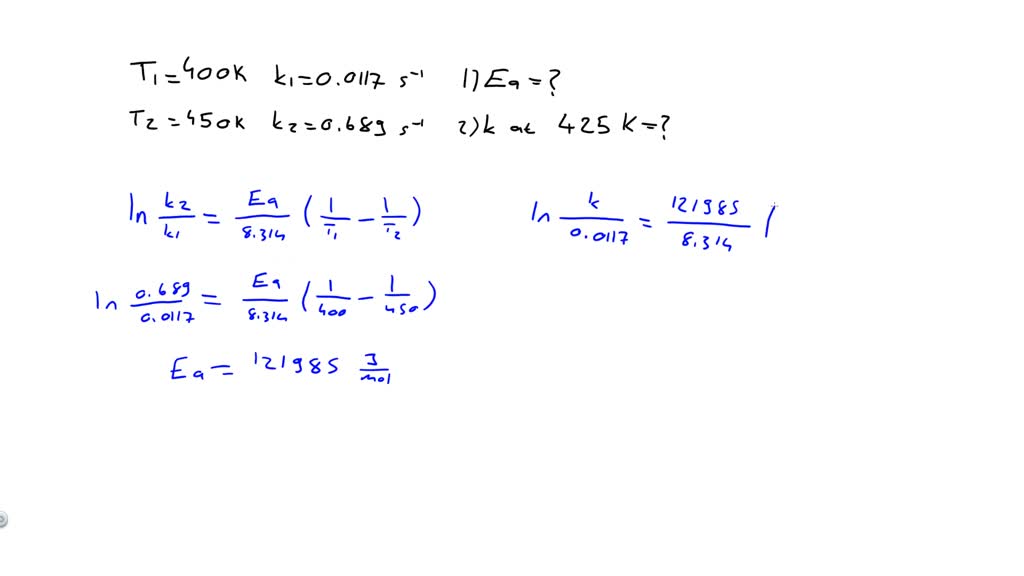 T1=400K k1=0.0117 s⁻¹ 1)Ea=?
T2=450K k2=0.689 s⁻¹ 2)k at 425 K=?
ln k2/k1 = Ea/8.314 (1/T1 - 1/T2)
ln k/0.0117 = 121985/8.314 (
ln 0.689/0.0117 = Ea/8.314 (1/400 - 1/450)
Ea= 121985 J/mol